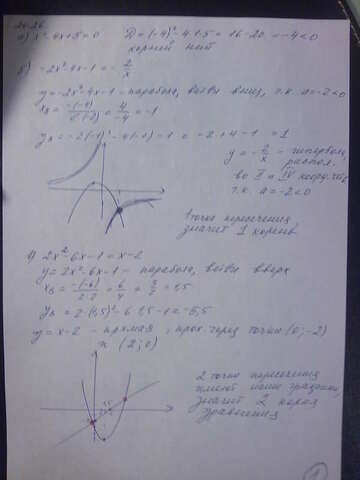 а) x²-4x+5=0   D=(-4)²-4·1·5=16-20=-4<0
корней нет
б) -2x²-4x-1=-2/x
y=-2x²-4x-1 - парабола, ветви вниз, т.к. a=-2<0
xв=-(-4)/2·(-2)=4/-4=-1
yв=-2·(-1)²-4·(-1)-1=-2+4-1=1
y=-2/x - гипербола,
распол.
во II и IV коор. чет.
т.к. a=-2<0
1 точка пересечения,
значит 1 корень.
в) 2x²-6x-1=x-2
y=2x²-6x-1 - парабола, ветви вверх
xв=-(-6)/2·2=6/4=3/2=1,5
yв=2·(1,5)²-6·1,5-1=-5,5
y=x-2 - прямая, прох. через точки (0;-2)
и (2;0)
2 точки пересечения
имеют наши графики,
значит 2 корня
уравнения